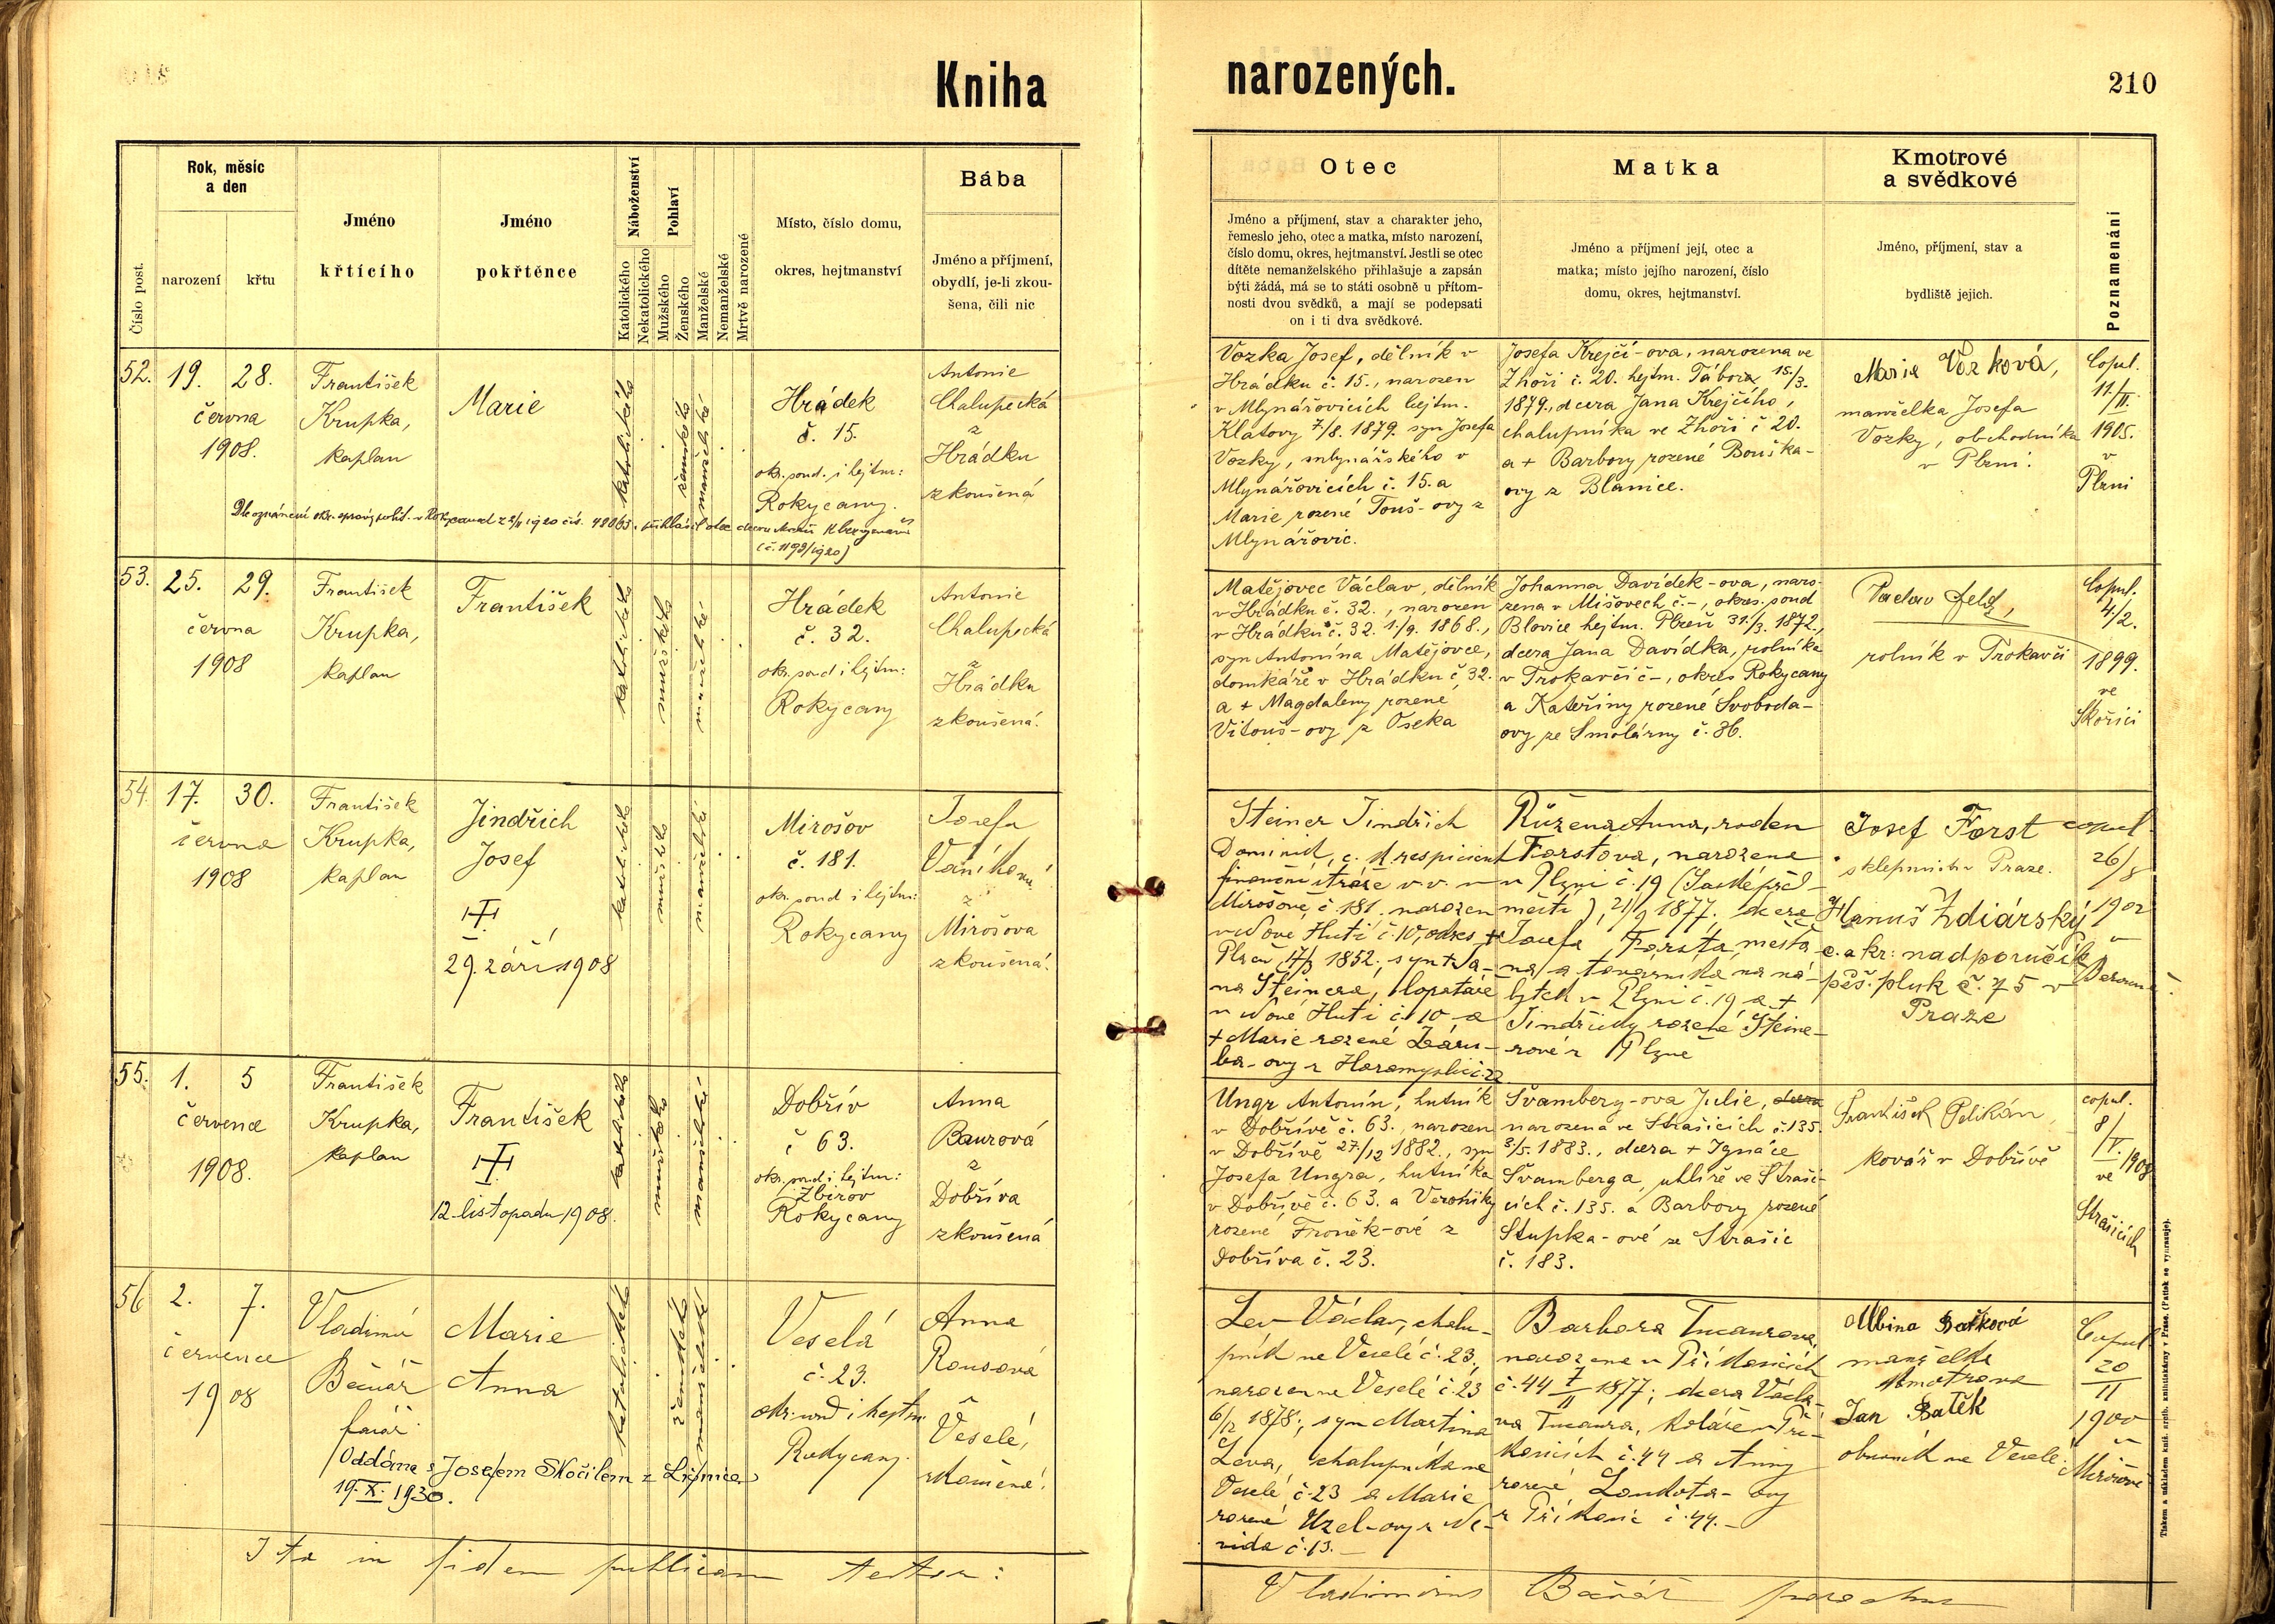 Kniha
narozených.
210
Číslo post.
Rok, měsíc
a den
narození
křtu
Jméno
křtícího
Jméno
pokřtěnce
Náboženství
Katolického
Nekatolického
Pohlaví
Mužského
Ženského
Manželské
Nemanželské
Mrtvě narozené
Místo, číslo domu,
okres, hejtmanství
Bába
Jméno a příjmení,
obydlí, je-li zkou-
šena, čili nic
Otec
Jméno a příjmení, stav a charakter jeho,
řemeslo jeho, otec a matka, místo narození,
číslo domu, okres, hejtmanství. Jestli se otec
dítěte nemanželského přihlašuje a zapsán
býti žádá, má se to státi osobně u přítom-
nosti dvou svědků, a mají se podepsati
on i ti dva svědkové.
Matka
Jméno a příjmení její, otec a
matka; místo jejího narození, číslo
domu, okres, hejtmanství.
Kmotrové
a svědkové
Jméno, příjmení, stav a
bydliště jejich.
Poznamenání
52.
19.
28.
června
1908.
František
Krupka,
kaplan
Marie
katolického
ženského
manželské
Hrádek
č. 15.
okr. soud. i hejtm:
Rokycany.
(č. 1192/1920)
Antonie
Chalupecká
z
Hrádku
zkoušená
Vozka Josef, dělník v
Hrádku č. 15., narozen
v Mlynářovicích hejtm.
Klatovy 7/8. 1879. syn Josefa
Vozky, mlynářského v
Mlynářovicích č. 15. a
Marie rozené Touš-ovy z
Mlynářovic.
Josefa Krejčí-ova, narozena ve
Zhoři č. 20. hejtm. Tábor 15./3.
1879., dcera Jana Krejčího,
chalupníka ve Zhoři č 20.
a + Barbory rozené Bouška-
ovy z Blanice.
Marie Vozková,
manželka Josefa
Vozky, obchodníka
v Plzni.
Copul.
11./II.
1905.
v
Plzni
53.
25.
29.
června
1908
František
Krupka,
kaplan
František
katolického
mužského
manželské
Hrádek
č. 32.
okr. soud i hejtm:
Rokycany
Antonie
Chalupecká
z
Hrádku
zkoušená.
Matějovec Václav, dělník
v Hrádku č. 32., narozen
v Hrádku č. 32. 1./9. 1868.,
syn Antonína Matějovce,
domkáře v Hrádku č. 32.
a + Magdaleny rozené
Vitouš-ovy z Oseka
Johanna Davídek-ova, naro-
zena v Mišovech č.-, okres. soud
Blovice hejtm. Plzeň 31./3. 1872.,
dcera Jana Davídka, rolníka
v Trokavči č-, okres Rokycany
a Kateřiny rozené Svoboda-
ovy ze Smolárny č. 36.
rolník v Trokavči
Copul.
4./2.
1899.
ve
Skořici
54.
17.
30.
června
1908
František
Krupka,
kaplan
Jindřich
Josef
29. září 1908
katolického
mužského
manželské
Mirošov
č. 181.
okr. soud i hejtm:
Rokycany
Josefa
Vaníková
z
Mirošova
zkoušená.
Steiner Jindřich
Dominik, c. k respicient
finanční stráže v. v. v
Mirošově č. 181. narozen
v Nové Huti č. 10, okres
Plzeň 17/3 1852., syn + Ja-
na Steinera, lopatáře
v Nové Huti č. 10 a
+ Marie rozené Záru-
ba-ovy z Horomyslic č. 22
Růžena Anna, roden
Forstova, narozena
v Plzni č. 19 (Saské před-
městí), 21/9 1877. dcera
+ Josefa Forsta, měšťa-
na a továrníka na ná-
bytek v Plzni č. 19 a +
Jindřišky rozené Steine-
rové z Plzně
Josef Forst
sklepník v Praze.
Hanuš Zdiárský
c. a kr: nadporučík
pěš. pluk č. 75 v
Praze
copul.
26/8
1902
v
Berouně.
55.
1.
5
července
1908.
František
Krupka,
kaplan
František
12. listopadu 1908.
katolického
mužského
manželské
Dobřív
č 63.
okr. soud i hejtm:
Zbirov
Rokycany
Anna
Baurová
z
Dobříva
zkoušená
Ungr Antonín, hutník
v Dobřívě č. 63., narozen
v Dobřívě 27/12 1882., syn
Josefa Ungra, hutníka
v Dobřívě č. 63. a Veroniky
rozené Froněk-ové z
Dobříva č. 23.
Švamberg-ova Julie, dcera
narozena ve Strašicích č. 135.
3./5. 1883., dcera + Ignáce
Švamberga, uhlíře ve Straši-
cích č. 135. a Barbory rozené
Stupka-ové ze Strašic
č. 183.
František Pelikán,
kovář v Dobřívě
copul.
8/V. 1908
ve
Strašicích
56
2.
7.
července
1908
Vladimír
Bečvář
farář
Marie
Anna
Oddána s Josefem Skočilem z Lipnice
19. X. 1930.
katolického
ženského
manželské
Veselá
č. 23.
okr: soud i hejtm.
Rokycany.
Anna
Rousová
Veselé,
zkoušená.
Lev Václav, chalu-
pník ve Veselé č. 23.,
narozen ve Veselé č. 23
6/12 1878., syn Martina
Leva, chalupníka ve
Veselé č. 23 a Marie
rozené Uzel-ovy z Ne-
vida č. 13.
Barbora Tucaurova,
narozena v Příkosicích
č. 44 7/II 1877; dcera Václa-
va Tucaura, koláře v Pří-
kosicích č. 44 a Anny
rozené Loukota-ovy
z Příkosic č. 44.
Albina Baťková
manželka
kmotrova
Jan Batěk
obuvník ve Veselé.
Copul
20
II
1900
v
Mirošově
Ita in fidem publicam testor:
Vladimirus Bečvář parochus
Tiskem a nákladem kníž. arcib. knihtiskárny v Praze. (Patisk se vyhrazuje).